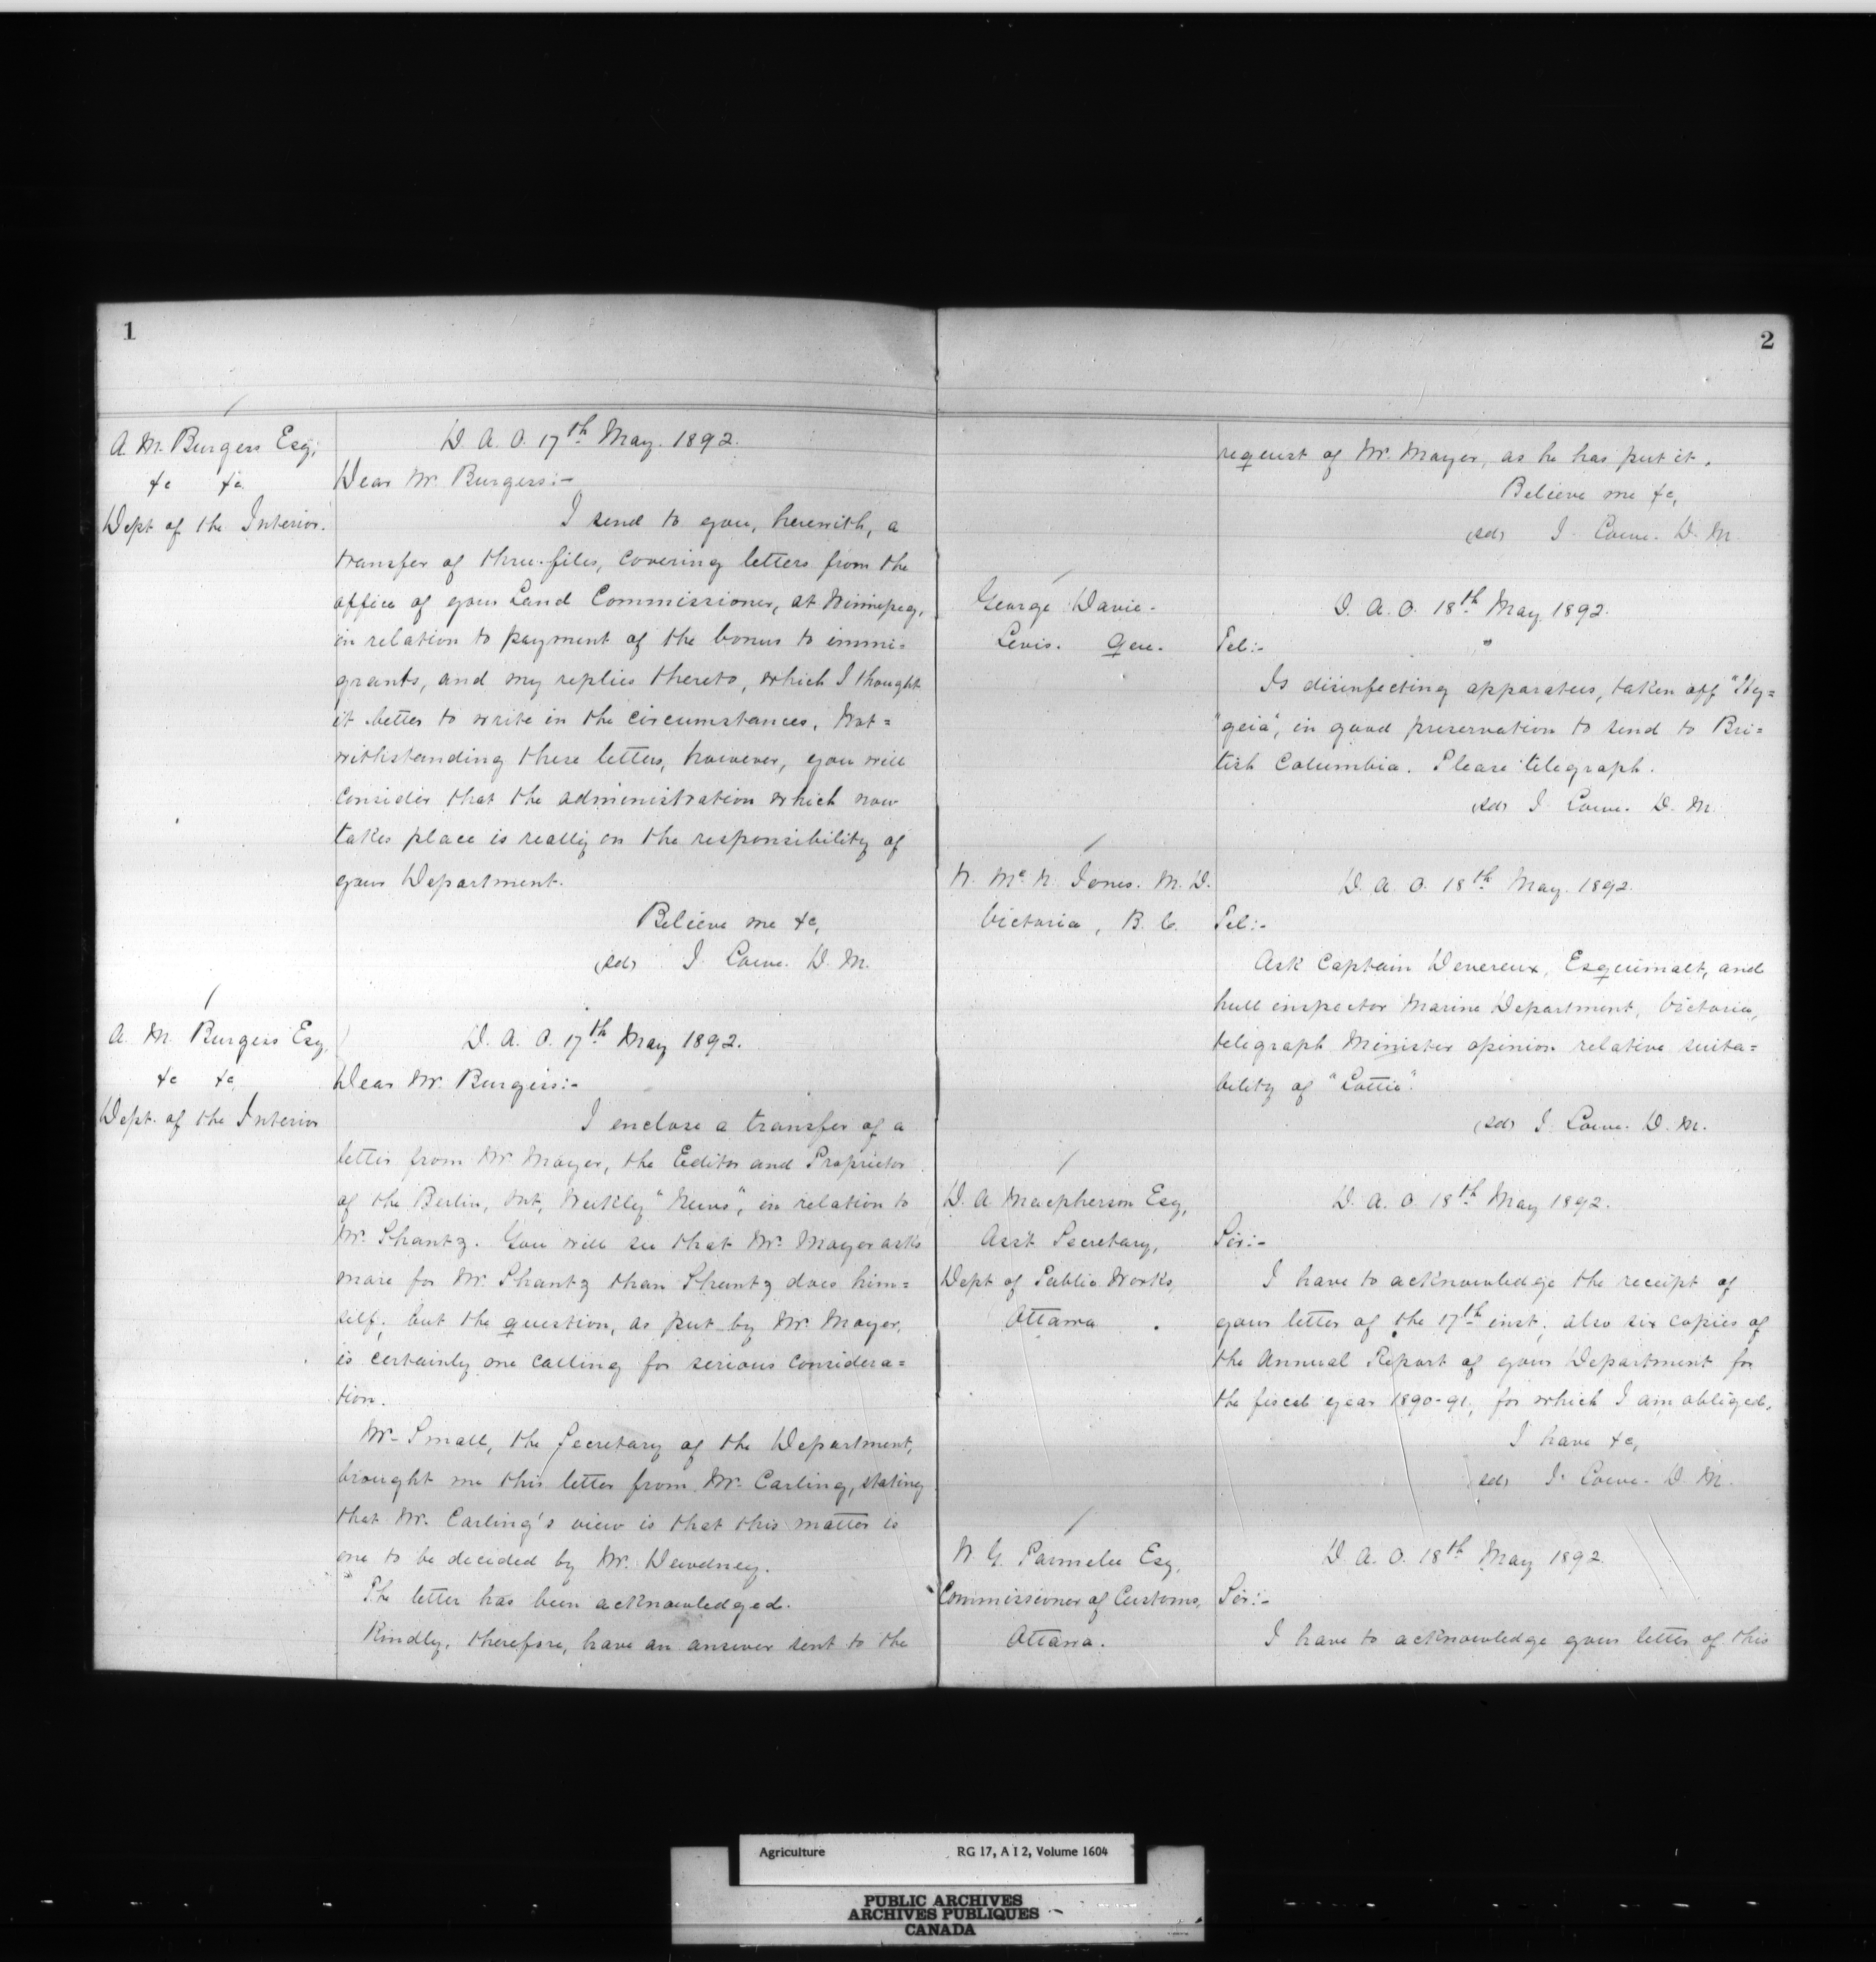 1
A. M. Burgess Esq,
&c &c
Dept of the Interior.
D. A. O. 17th May. 1892.
Dear Mr. Burgess:-
I send to you, herewith, a
transfer of three files, covering letters from the
office of your Land Commissioner, at Winnipeg,
in relation to payment of the bonus to immi=
grants, and my replies thereto, which I thought
it better to write in the circumstances. Not=
withstanding these letters, however, you will
consider that the administration which now
takes place is really on the responsibility of
your Department.
Believe me &c,
(sd) J. Lowe. D. M.
A. M. Burgess Esq,
&c &c
Dept. of the Interior
D. A. O. 17th May 1892.
Dear Mr. Burgess:-
I enclose a transfer of a
letter from Mr Mayer, the Editor and Proprietor
of the Berlin, Ont, Weekly "News", in relation to
Mr. Shantz. You will see that Mr. Mayer asks
more for Mr. Shantz than Shantz does him=
self; but the question, as put by Mr. Mayer,
is certainly one calling for serious considera=
tion.
Mr. Small, the Secretary of the Department,
brought me this letter from Mr. Carling, stating
that Mr. Carling's view is that this matter is
one to be decided by Mr. Dewdney.
The letter has been acknowledged.
Kindly, therefore, have an answer sent to the
2
request of Mr. Mayer, as he has put it.
Believe me &c,
(sd) J. Lowe. D. M.
George Davie.
Levis. Que.
D. A. O. 18th May 1892.
Tel:-
Is disinfecting apparatus, taken off "Hy=
"geia", in good preservation to send to Bri=
tish Columbia. Please telegraph.
(sd) J. Lowe. D. M.
W. McN. Jones. M. D.
Victoria, B. C.
D. A. O. 18th May. 1892.
Tel:-
Ask Captain Devereux, Esquimalt, and
hull inspector Marine Department, Victoria,
telegraph Minister opinion relative suita=
bility of "Lottie".
(sd) J. Lowe. D. M.
D. A. Macpherson Esq,
Asst Secretary,
Dept of Public Works,
Ottawa
D. A. O. 18th May 1892.
Sir:-
I have to acknowledge the receipt of
your letter of the 17th inst; also six copies of
the Annual Report of your Department for
the fiscal year 1890-91, for which I am obliged.
I have &c,
(sd) J. Lowe. D. M.
W. G. Parmelee Esq,
Commissioner of Customs,
Ottawa.
D. A. O. 18th May 1892.
Sir:-
I have to acknowledge your letter of this
Agriculture RG 17, A I 2, Volume 1604
PUBLIC ARCHIVES
ARCHIVES PUBLIQUES
CANADA